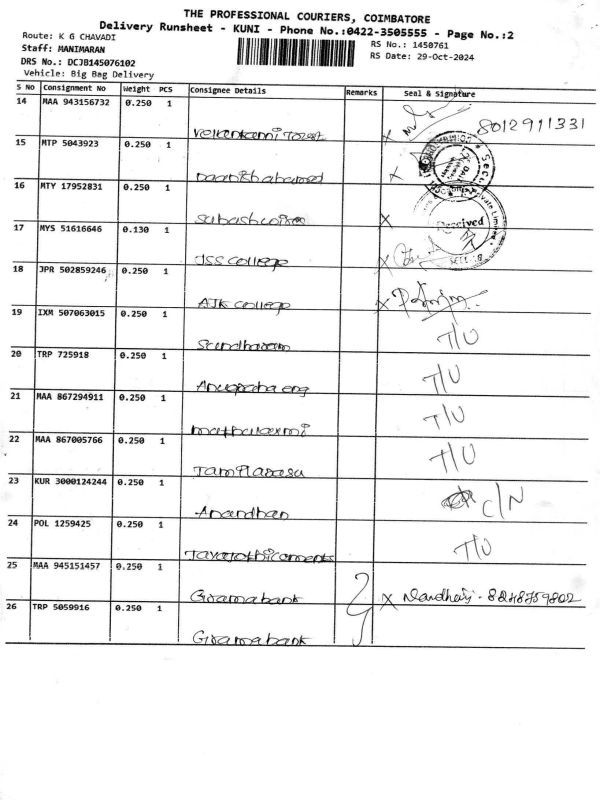 THE PROFESSIONAL COURIERS, COIMBATORE
Delivery Runsheet - KUNI - Phone No.:0422-3505555 - Page No.:2
Route: K G CHAVADI
RS No.: 1450761
Staff: MANIMARAN
RS Date: 29-Oct-2024
DRS No.: DCJB145076102
Vehicle: Big Bag Delivery
S No Consignment No Weight PCS Consignee Details Remarks Seal & Signature
14 MAA 943156732 0.250 1
8012911331
15 MTP 5043923 0.250 1
16 MTY 17952831 0.250 1
Received
17 MYS 51616646 0.130 1
JSS College
18 JPR 502859246 0.250 1
AJK College
19 IXM 507063015 0.250 1
Sundharam T/U
20 TRP 725918 0.250 1
T/U
21 MAA 867294911 0.250 1
T/U
22 MAA 867005766 0.250 1
Tamilarasu T/U
23 KUR 3000124244 0.250 1
Anandhan C/N
24 POL 1259425 0.250 1
T/U
25 MAA 945151457 0.250 1
Gramabank
26 TRP 5059916 0.250 1
Gramabank